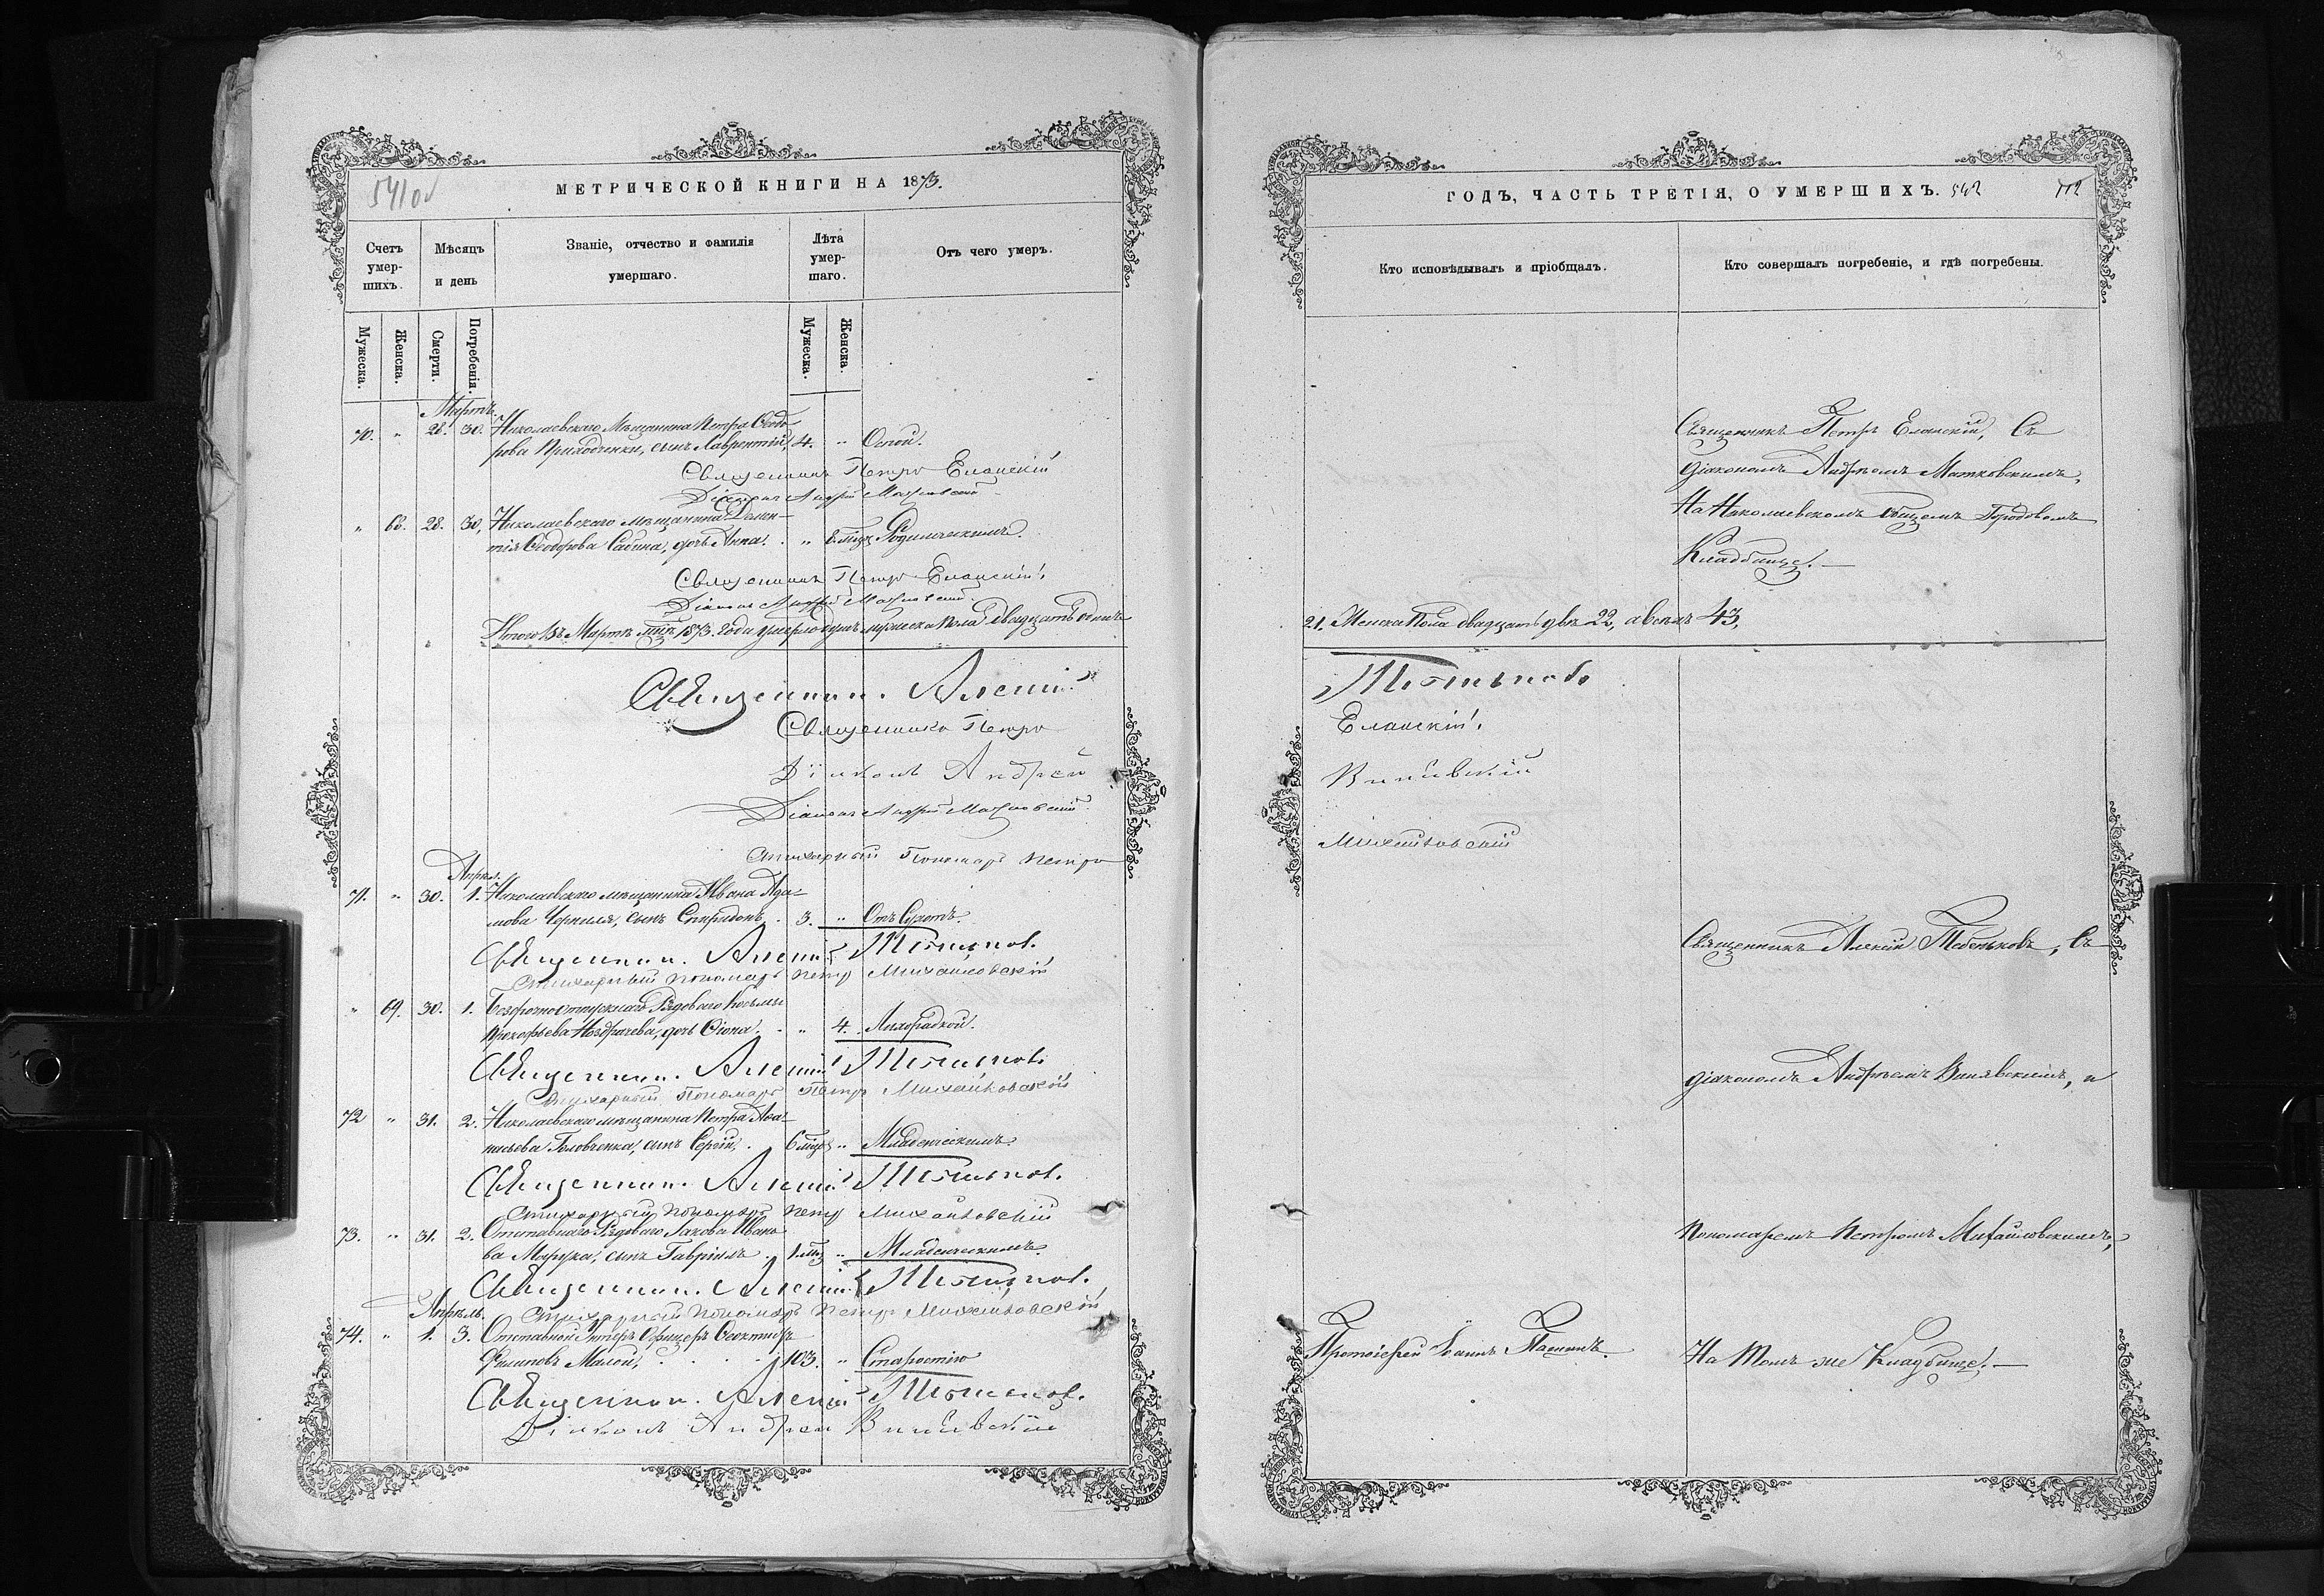 541об
МЕТРИЧЕСКОЙ КНИГИ НА 1873.
Счетъ умер-шихъ.
Мѣсяцъ и день
Званіе, отчество и фамилія умершаго.
Лѣта умер-шаго.
Отъ чего умеръ.
Мужеска.
Женска.
Смерти.
Погребенія.
Мужеска.
Женска.
Мартъ.
70. " 28. 30. Николаевскаго Мѣщанина Петра Ѳеодо-
рова Приходченки, сынъ Лаврентій, 4. " Оспой.
Священникъ Петръ Еланскій
Діаконъ Андрей
" 68. 28. 30. Николаевскаго мѣщанина Демен-
тія Ѳеодорова Сабина, дочь Анна. " 8 мцъ Родимческимъ.
Священникъ Петръ Еланскій.
Діаконъ Андрей
Итого въ Мартѣ мцѣ 1873. года умерло душъ мужеска пола двадцать одинъ
Священникъ Алексій
Священникъ Петръ
Діаконъ Андрей
Діаконъ Андрей
Стихарный Пономарь Петръ
Апрѣл.
71. " 30. 1. Николаевскаго мѣщанина Ивана Ада-
мова Черниля, сынъ Спиридонъ. 3. " Отъ Сухотъ.
Священникъ Алексій
Стихарный пономарь Петръ Михайловскій
" 69. 30. 1. Безсрочноотпускнаго Рядоваго Косьмы
Прокофьева Ноздрачева, дочь Ѳіона. " 4. Лихорадкой.
Священникъ Алексій
Стихарный Пономарь Петръ Михайловскій
72 " 31. 2. Николаевскаго мѣщанина Петра Аѳа-
насьева Головченка, сынъ Сергій, 6 мцъ " Младенческимъ.
Священникъ Алексій
Стихарный пономарь Петръ Михайловскій
73. " 31. 2. Отставнаго Рядоваго Іакова Ивано-
ва сынъ Гавріилъ. 1 мц " Младенческимъ.
Священникъ Алексій
Стихарный пономарь Петръ Михайловскій
Апрѣль.
74. " 1. 3. Отставной Унтеръ Офицеръ Ѳеоктистъ
Филиповъ Малой, 103. " Старостію
Священникъ Алексій
Діаконъ Андрей
ГОДЪ, ЧАСТЬ ТРЕТІЯ, О УМЕРШИХЪ. 542
112
Кто исповѣдывалъ и пріобщалъ.
Кто совершалъ погребеніе, и гдѣ погребены.
Священникъ Петръ Еланскій, Съ
діакономъ Андреемъ
На Николаевскомъ Общемъ Городовомъ
Кладбищѣ.
21. Женска Пола двадцать двѣ 22, а всѣхъ 43,
Еланскій.
Михайловскій
Священникъ Алексій Съ
діакономъ Андреемъ и
Пономаремъ Петромъ Михайловскимъ,
Протоіерей Іоаннъ
На Томъ же Кладбищѣ.